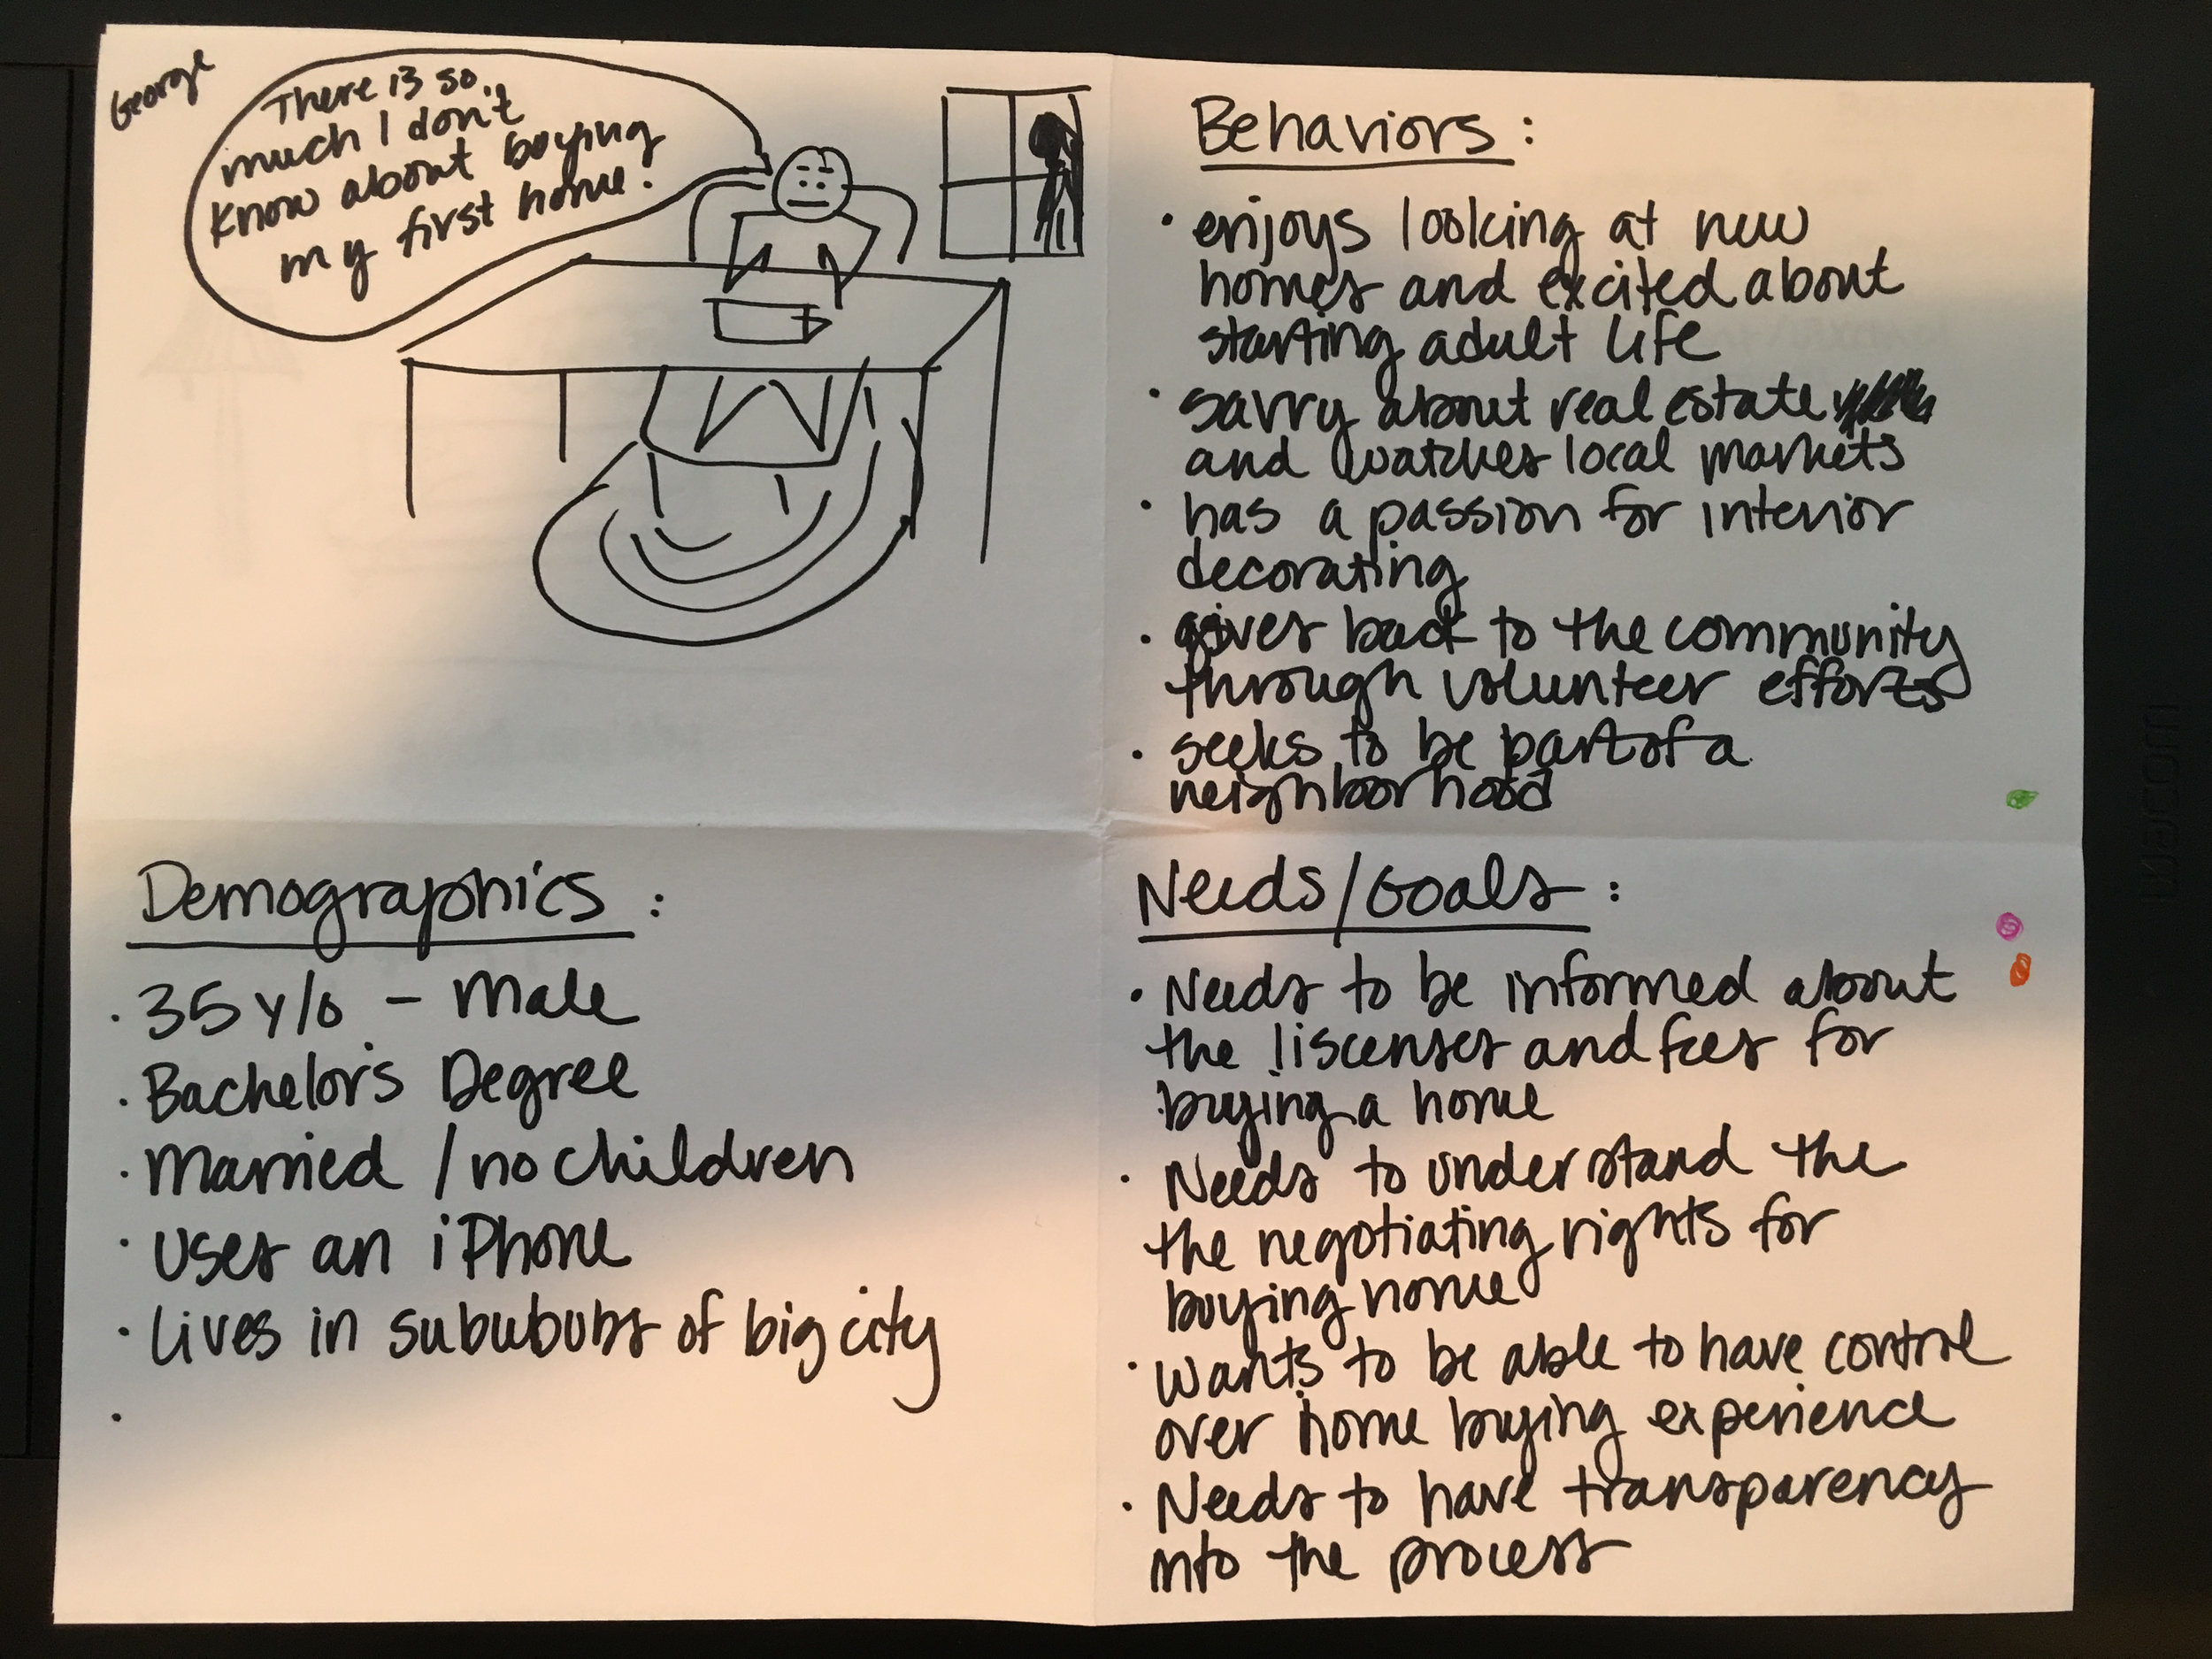 George
There is so
much I don't
know about buying
my first home!
Behaviors:
• enjoys looking at new
homes and excited about
starting adult life
• savvy about real estate
and watches local markets
• has a passion for interior
decorating
• gives back to the community
through volunteer efforts
• seeks to be part of a
neighborhood
Demographics:
• 35 y/o - Male
• Bachelor's Degree
• Married / no children
• Uses an iPhone
• Lives in subububs of big city
•
Needs/Goals:
• Needs to be informed about
the liscenses and fees for
buying a home
• Needs to understand the
the negotiating rights for
buying home
• Wants to be able to have control
over home buying experience
• Needs to have transparency
into the process
wacom